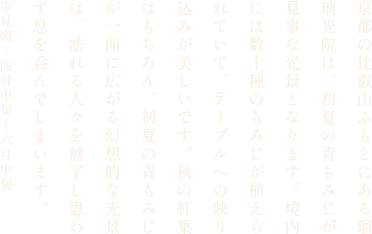 京都の比叡山ふもとにある瑠
璃光院は、初夏の青もみじが
見事な光景となります。境内
には数十種のもみじが植えら
れていて、テーブルへの映り
込みが美しいです。秋の紅葉
はもちろん、初夏の青もみじ
が一面に広がる幻想的な光景
は、訪れる人々を魅了し思わ
ず息を呑んでしまいます。
※見頃：四月中旬―六月中旬